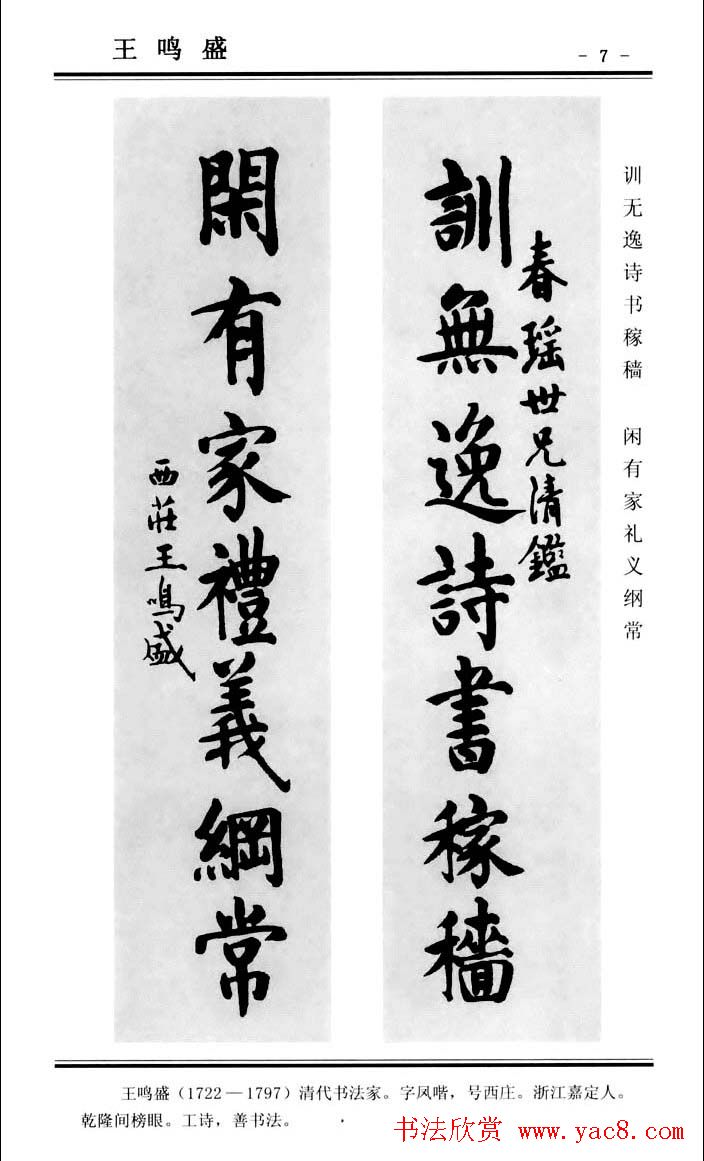 王鸣盛
- 7 -
训无逸诗书稼穑 闲有家礼义纲常
春瑶世兄清鑑
訓無逸詩書稼穡
閑有家禮義綱常
西莊王鳴盛
王鸣盛(1722—1797)清代书法家。字凤喈,号西庄。浙江嘉定人。
乾隆间榜眼。工诗,善书法。
书法欣赏 www.yac8.com